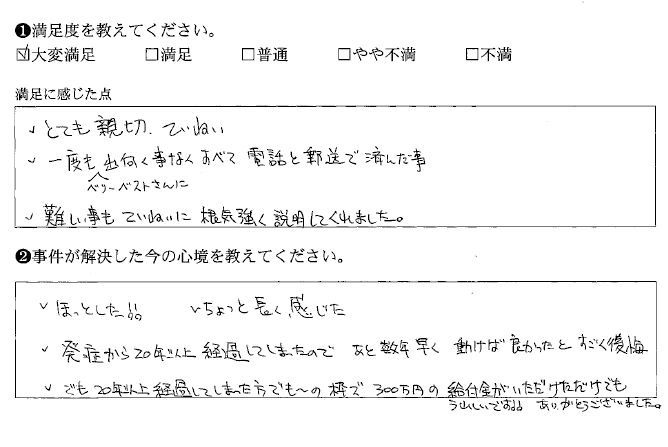 ❶満足度を教えてください。
☑大変満足 □満足 □普通 □やや不満 □不満
満足に感じた点
✓とても親切、ていねい
✓一度も出向く事なくすべて電話と郵送で済んだ事
ベリーベストさんに
✓難しい事もていねいに根気強く説明してくれました。
❷事件が解決した今の心境を教えてください。
✓ほっとした!! ✓ちょっと長く感じた
✓発症から20年以上経過してしまったので あと数年早く動けば良かったとすごく後悔
✓でも20年以上経過してしまった方でも〜の枠で300万円の給付金がいただけただけでも
うれしいです!! ありがとうございました。